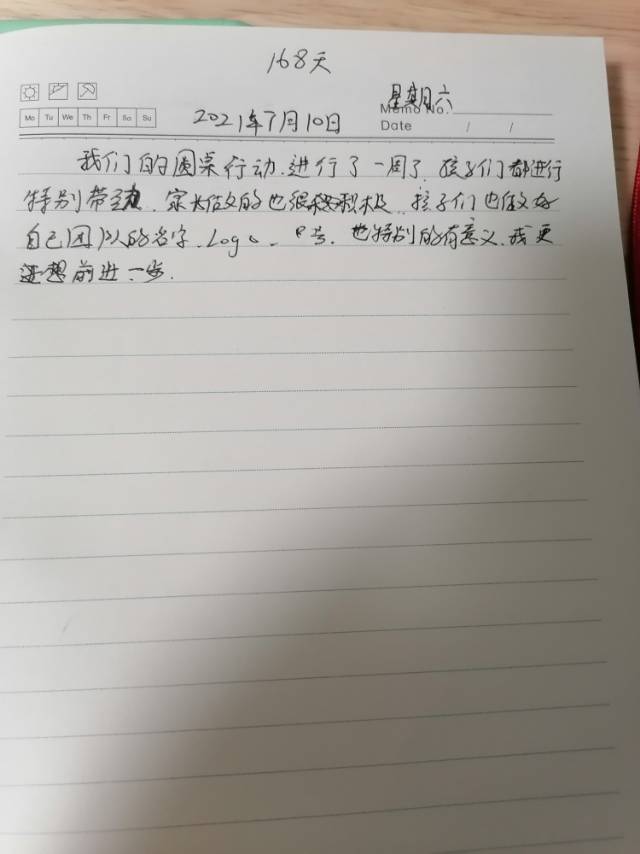 168天
星期六
Memo No.
Mo Tu We Th Fr Sa Su
2021年7月10日
Date / /
我们的圆桌行动.进行了一周了.孩子们都进行
特别带劲.家长做的也很积极.孩子们也做好
自己团队的名字.Logo.口号.也特别的有意义.我更
想前进一步.